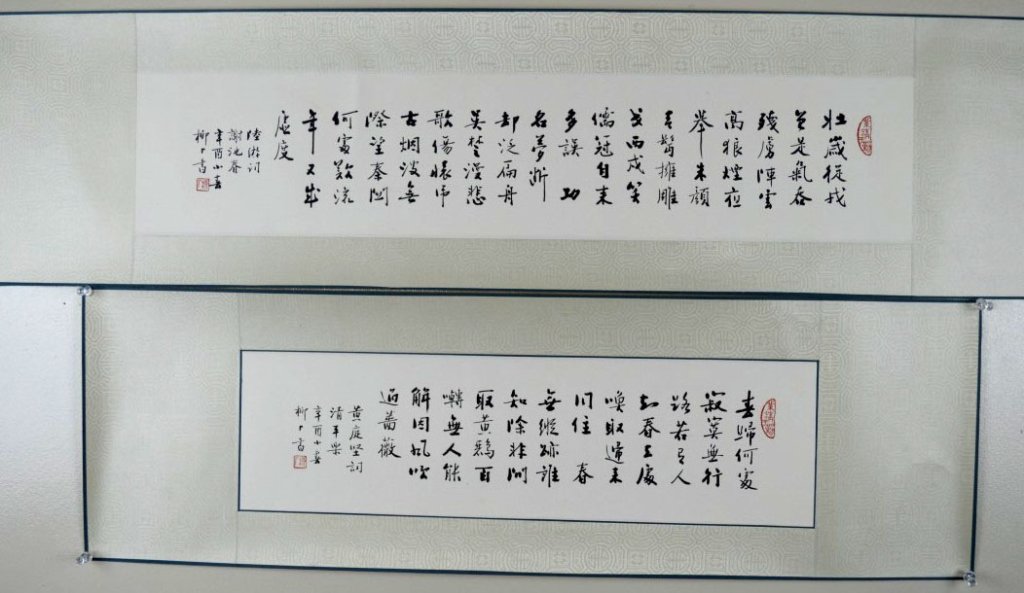 壯歲從戎
曾是氣吞
殘虜陣雲
高狼煙夜
舉朱顏
青鬢擁雕
戈西戍笑
儒冠自來
多誤功
名夢斷
却泛扁舟
吳楚漫悲
歌傷懷弔
古烟波無
際望秦関
何處歎流
年又成
虛度
陸游詞
謝池春
辛酉小春
柳書
春歸何處
寂寞無行
路若有人
知春去處
喚取歸來
同住春
無蹤跡誰
知除非問
取黃鸝百
囀無人能
解因風吹
過薔薇
黃庭堅詞
清平樂
辛酉小春
柳書